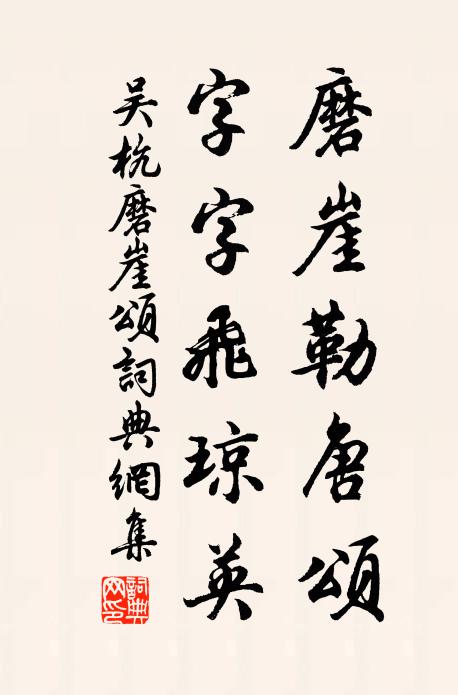 磨崖勒唐頌
字字飛琼英
吴杭磨崖頌詞典網集
詞典网印